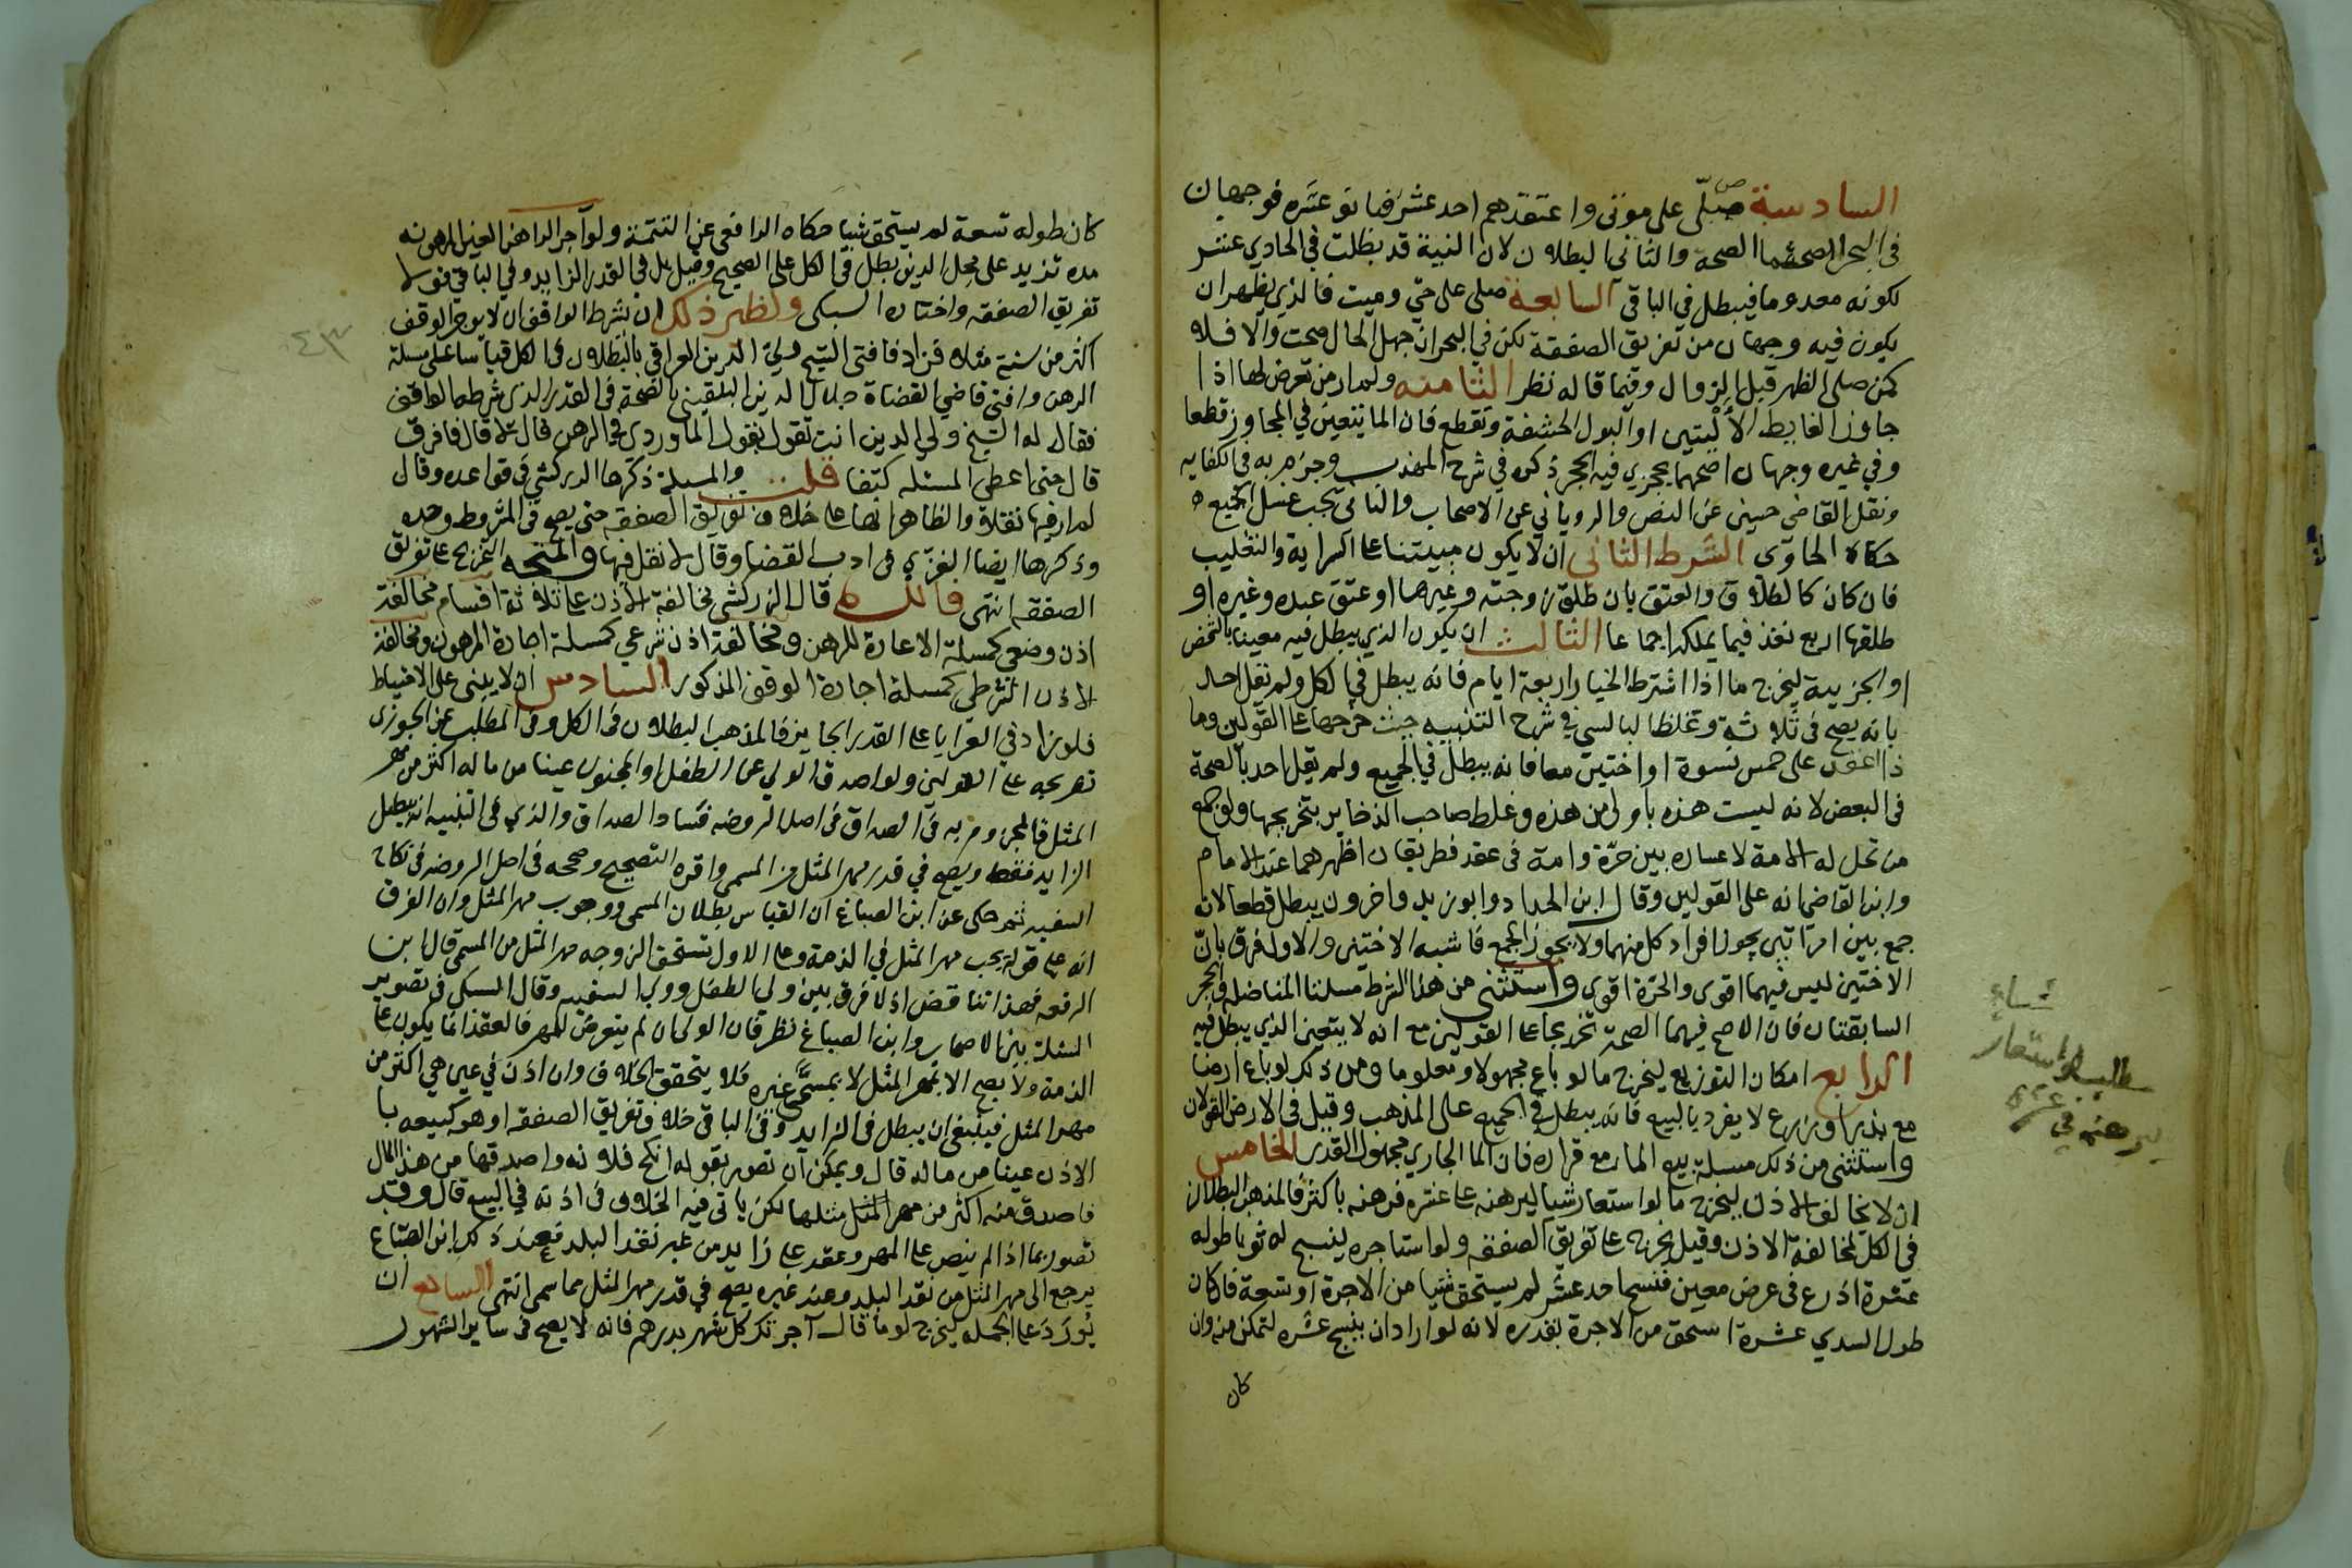 السادسة صلى على موتى واعتقدهم احد عشر فبانو عشره فوجهان
في البحر اصحهما الصحة والثاني البطلان لان النية قد بطلت في الحادي عشر
لكونه معدوما فيبطل في الباقي السابعة صلى على حي وميت فالذي يظهر ان
يكون فيه وجهان من تفريق الصفقة لكن في البحر ان جهل الحال صحت والا فلا
كمن صلى الظهر قبل الزوال وفيما قاله نظر الثامنه ولم ار من تعرض لها اذا
جاوز الغايط الأليتين او البول الحشفة وتقطع فان الما يتعين في المجاوز قطعا
وفي غيره وجهان اصحهما يجزي فيه الحجر ذكره في شرح المهذب وجزم به في الكفايه
ونقل القاضي حسين عن النص والروياني عن الاصحاب والثاني يجب غسل الجميع
حكاه الحاوى الشرط الثاني ان لا يكون مبيتنا على السراية والتغليب
فان كان كالطلاق والعتق بان طلق زوجته وغيرها او عتق عبده وغيره او
طلقها اربع نفذ فيما يملكه اجماعا الثالث ان يكون الذي يبطل فيه معينا بالشخص
او الجزيية ليخرج ما اذا اشترط الخيار اربعة ايام فانه يبطل في الكل ولم يقل احد
بانه يصح في ثلاثة وغلط البالسي في شرح التنبيه حيث خرجها على القولين وما
اذا عقد على خمس نسوة او اختين معا فانه يبطل في الجميع ولم يقل احد بالصحة
في البعض لانه ليست هذه باولى من هذه وغلط صاحب الذخاير بتخريجها ولو جمع
من تحل له الامة لاعساره بين حرة وامة في عقد فطريقان اظهرهما عند الامام
وابن القاضي انه على القولين وقال ابن الحداد وابو زيد واخرون يبطل قطعا لانه
جمع بين امراتين يجوز افراد كل منهما ولا يجوز الجمع فاشبه الاختين والاول فرق بان
الاختين ليس فيهما اقوى والحرة اقوى واستثنى من هذا الشرط مسلتا المناضلة والحجر
السابقتان فان الاصح فيهما الصحة تخريجا على القولين مع انه لا يتعين الذي يبطل فيه
الرابع امكان التوزيع ليخرج ما لو باع مجهولا ومعلوما ومن ذلك لو باع ارضا
مع بذر او زرع لا يفرد بالبيع فانه يبطل في الجميع على المذهب وقيل في الارض القولان
واستثنى من ذلك مسلة بيع الما مع قراره فان الما الجاري مجهول القدر الخامس
ان لا يخالف الاذن ليخرج ما لو استعار شيا ليرهنه على عشره فرهنه باكثر فالمذهب البطلان
في الكل لمخالفة الاذن وقيل يخرج على تفريق الصفقه ولو استاجره لينسج له ثوبا طوله
عشرة اذرع في عرض معين فنسج احد عشر لم يستحق شيا من الاجرة او تسعة فان كان
طول السدي عشرة استحق من الاجرة بقدره لانه لو اراد ان ينسج عشره لتمكن منه وان
كان
مطلب لو استعار شيا
ليرهنه في عشرة
٤٣
كان طوله تسعة لم يستحق شيا حكاه الرافعي عن التتمة ولو آجر الراهن العين المرهونه
مده تزيد على محل الدين بطل في الكل على الصحيح وقيل بل في القدر الزايد وفي الباقي قولا
تفريق الصفقه واختاره السبكى ونظير ذلك ان شرط الواقف ان لا يوجر الوقف
اكثر من سنة مثلا فزاد فافتى الشيخ ولي الدين العراقي بالبطلان في الكل قياسا على مسلة
الرهن وافتى قاضي القضاة جلال الدين البلقيني بالصحة في القدر الذي شرطه الواقف
فقال له الشيخ ولي الدين انت تقول بقول الماوردي في الرهن قال لا قال فما فرق
قال حتى اعطي المسئله كتفا قلت والمسلة ذكرها الزركشي في قواعده وقال
لم ار فيها نقلا والظاهر انها على خلاف تفريق الصفقه حتى يصح في المشروط وحده
وذكرها ايضا الغزي في ادب القضا وقال لا نقل فيها والمتجه التخريج على تفريق
الصفقه انتهى فائدة قال الزركشي مخالفة الاذن على ثلاثة اقسام مخالفة
اذن وضعي كمسلة الاعارة للرهن ومخالفة اذن شرعي كمسلة اجارة المرهون ومخالفة
الاذن الشرطي كمسلة اجارة الوقف المذكور السادس ان لا يبنى على الاحتياط
فلو زاد في العرايا على القدر الجايز فالمذهب البطلان في الكل وفي المطلب عن الجوزى
تخريجه على القولين ولو اصدق الولي عن الطفل او المجنون عينا من ماله اكثر من مهر
المثل فالمجزوم به في الصداق في اصل الروضه فساد الصداق والذي في التنبيه انه يبطل
الزايد فقط ويصح في قدر مهر المثل من المسمى واقره التصحيح وصححه في اصل الروضه في نكاح
السفيه ثم حكى عن ابن الصباغ ان القياس بطلان المسمى ووجوب مهر المثل وان الفرق
انه على قوله يجب مهر المثل في الذمة وعلى الاول تستحق الزوجه مهر المثل من المسمى قال ابن
الرفعه فهذا تناقض اذ لا فرق بين ولي الطفل وولي السفيه وقال السبكى في تصوير
المسئلة بين الاصحاب وابن الصباغ نظر فان الولي ان لم يتعرض للمهر فالعقد انما يكون على
الذمة ولا يصح الا بمهر المثل لا بمسمى غيره فلا يتحقق الخلاف وان اذن في عين هي اكثر من
مهر المثل فينبغي ان يبطل في الزايد وفي الباقي خلاف تفريق الصفقه او هو كبيعه با
الاذن عينا من ماله قال ويمكن ان تصور بقوله انكح فلانه واصدقها من هذا المال
فاصدق منه اكثر من مهر المثل مثلها لكن ياتي فيه الخلاف في اذنه في البيع قال وقد
تصور بما اذا لم ينص على المهر وعقد على زايد من غير نقد البلد فعند ذلك ابن الصباغ
يرجع الى مهر المثل من نقد البلد وعند غيره يصح في قدر مهر المثل مما سمى انتهى السابع ان
يورد على الجملة ليخرج لو ما قال آجرتك كل شهر بدرهم فانه لا يصح في ساير الشهور